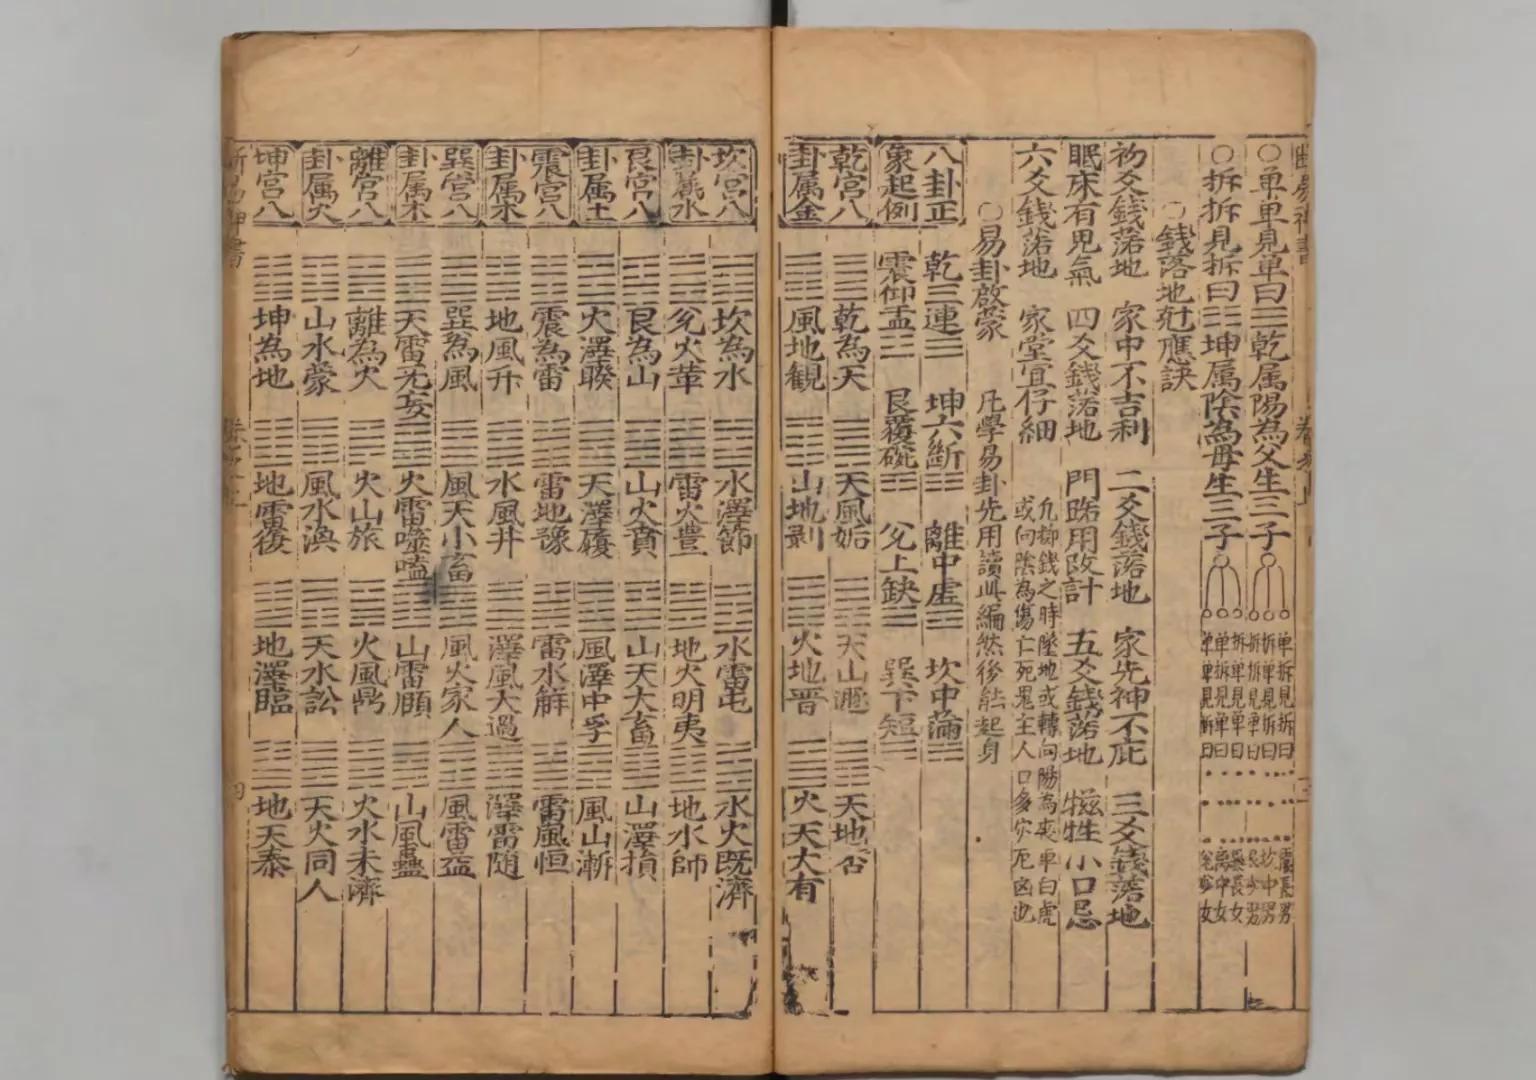 ○单单見单曰☰乾属陽為父生三子
单拆見拆曰 震長男
拆单見拆曰 坎中男
拆拆見单曰 艮少男
○拆拆見拆曰☷坤属陰為母生三子
拆单見单曰 巽長女
单拆見单曰 离中女
单单見拆曰 兊少女
○錢落地尅應訣
初爻錢落地 家中不吉利 二爻錢落地 家先神不庇 三爻錢落地
眠床有鬼氣 四爻錢落地 門路用改計 五爻錢落地 牲小口忌
六爻錢落地 家堂宜仔細
凢擲錢之時墜地或轉向陽為喪車白虎
或向陰為傷亡死鬼主人口多灾死凶也
○易卦啟蒙 凡學易卦先用讀此編然後能起身
八卦正
象起例
乾三連☰ 坤六斷☷ 離中虛☲ 坎中滿☵
震仰盂☳ 艮覆碗☶ 兊上缺☱ 巽下短☴
乾宮八
卦属金
乾為天 天風姤 天山遯 天地否
風地観 山地剥 火地晋 火天大有
坎宮八
卦属水
坎為水 水澤節 水雷屯 水火既濟
兊火革 雷火豊 地火明夷 地水師
艮宮八
卦属土
艮為山 山火賁 山天大畜 山澤損
火澤睽 天澤履 風澤中孚 風山漸
震宮八
卦属木
震為雷 雷地豫 雷水解 雷風恒
地風升 水風井 澤風大過 澤雷随
巽宮八
卦属木
巽為風 風天小畜 風火家人 風雷益
天雷无妄 火雷噬嗑 山雷頤 山風蠱
離宮八
卦属火
離為火 火山旅 火風鼎 火水未濟
山水蒙 風水渙 天水訟 天火同人
坤宮八
坤為地 地雷復 地澤臨 地天泰